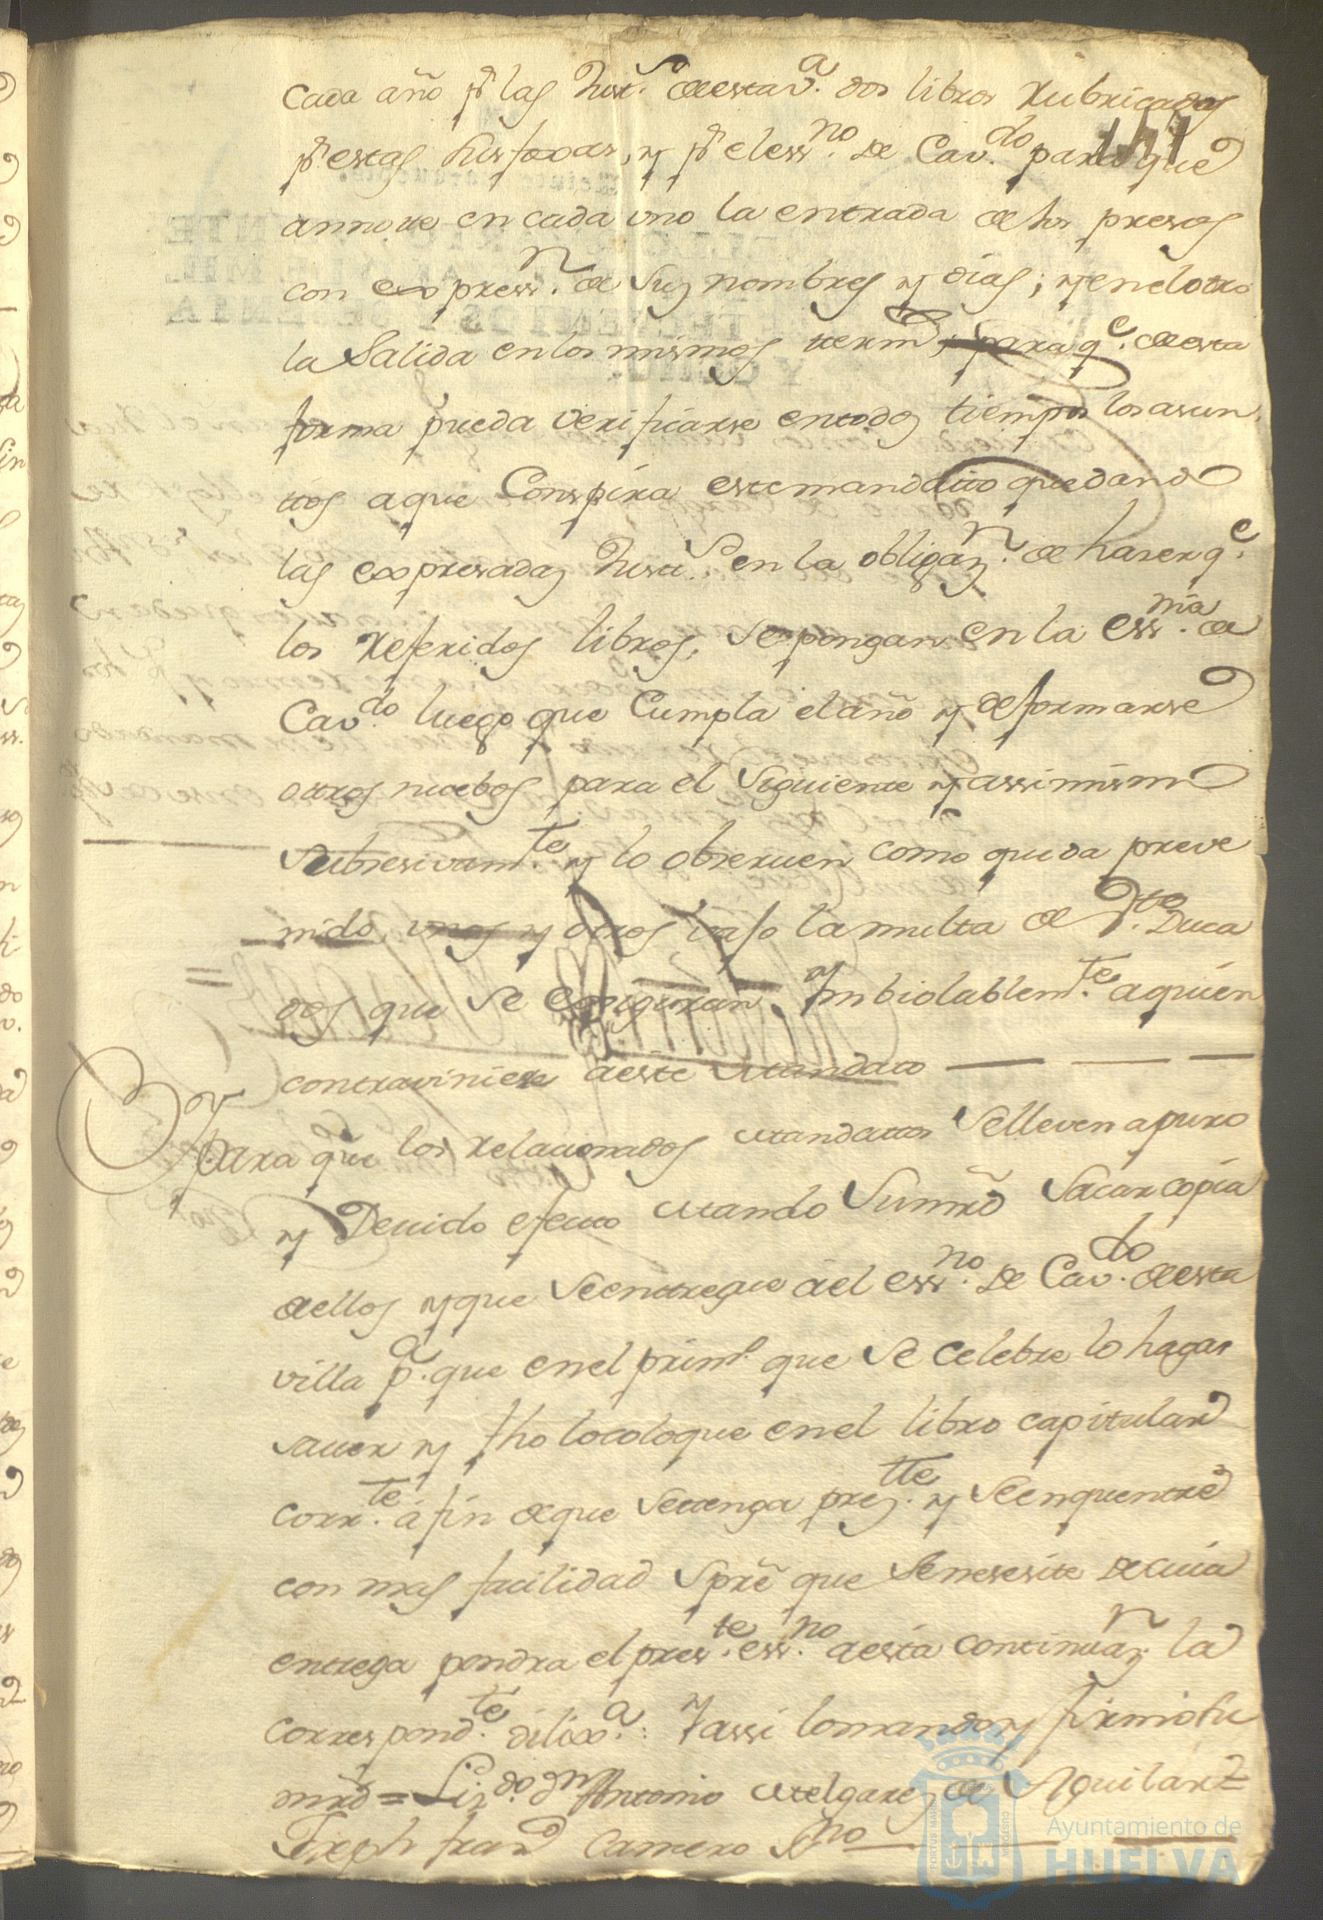 cada año pr las Just.s de esta v.a dos libros Rubricados
141
pr estas Justicias, y pr el ess.no de Cav.do para que
annote en cada uno la entrada de los presos
con express.n de Sus nombres y dias; y en el otro
la Salida en los mismos term.s, para q.e de esta
forma pueda verificarse en todos tiempos los asun
ttos a que Conspira este mandatto quedando
las expresadas Justi.s en la obligaz.n de haser q.e
los Referidos libros, se pongan en la ess.nia de
Cav.do luego que Cumpla el año y de formarse
otros nuebos para el Siguiente y assi mismo
Subresivam.te y lo obseruen como queda preve
nido unos y otros vajo la multa de Duca
dos que Se exsiguiran Ymbiolablem.te a quien
contraviniese a este Mandato
Y para que los Relacionados Mandattos Se lleven a puro
y Deuido efecto Mando Su mrd Sacar copia
de ellos y que Se enttregue a el ess.no de Cav.do de esta
villa p.a que en el prim.o que Se celebre lo haga
sauer y fho lo coloque en el libro capitular
corr.te á fin de que Se tenga prez.tte y Se enquentre
con mas facilidad Spre que Se nesesite de cuia
entrega pondra el pres.te ess.no a esta continuaz.n la
correspond.te dilix.a: Y assi lo mando y firmo su
mrd = Liz.do dn Antonio Melgarez de Aguilar =
Joseph fran.co Camero SS.no
Ayuntamiento de
HUELVA